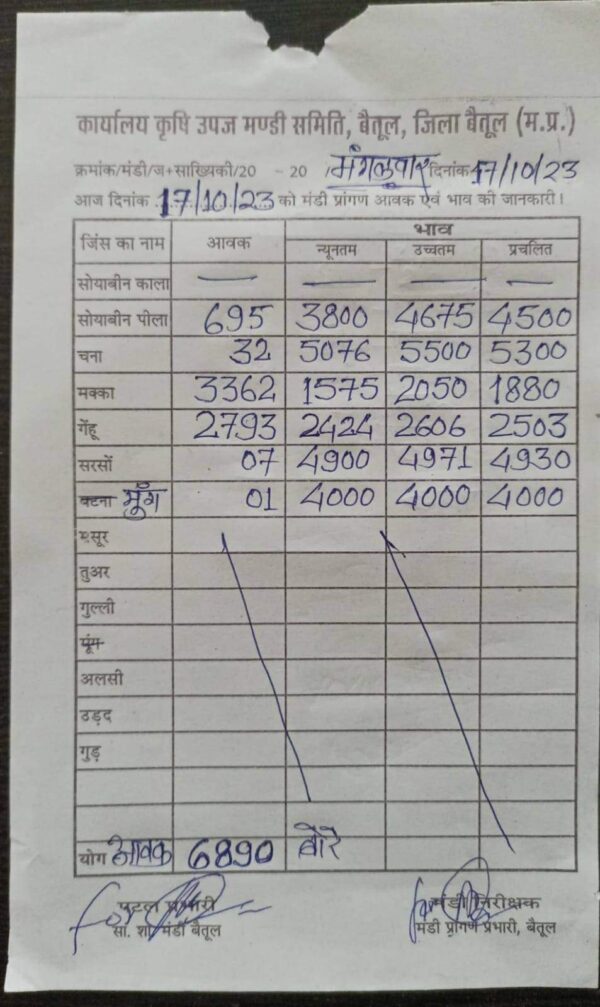 कार्यालय कृषि उपज मण्डी समिति, बैतूल, जिला बैतूल (म.प्र.)
क्रमांक/मंडी/ज+साख्यिकी/20 - 20 /मंगलवार दिनांक 17/10/23
आज दिनांक 17/10/23 को मंडी प्रांगण आवक एवं भाव की जानकारी।
जिंस का नाम आवक भाव
न्यूनतम उच्चतम प्रचलित
सोयाबीन काला — — — —
सोयाबीन पीला 695 3800 4675 4500
चना 32 5076 5500 5300
मक्का 3362 1575 2050 1880
गेंहू 2793 2424 2606 2503
सरसों 07 4900 4971 4930
बटना मुंग 01 4000 4000 4000
मसूर
तुअर
गुल्ली
मूंग
अलसी
उड़द
गुड़
योग आवक 6890 बोरे
पटल प्रभारी मंडी निरीक्षक
सां. शा. मंडी बैतूल मंडी प्रांगण प्रभारी, बैतूल